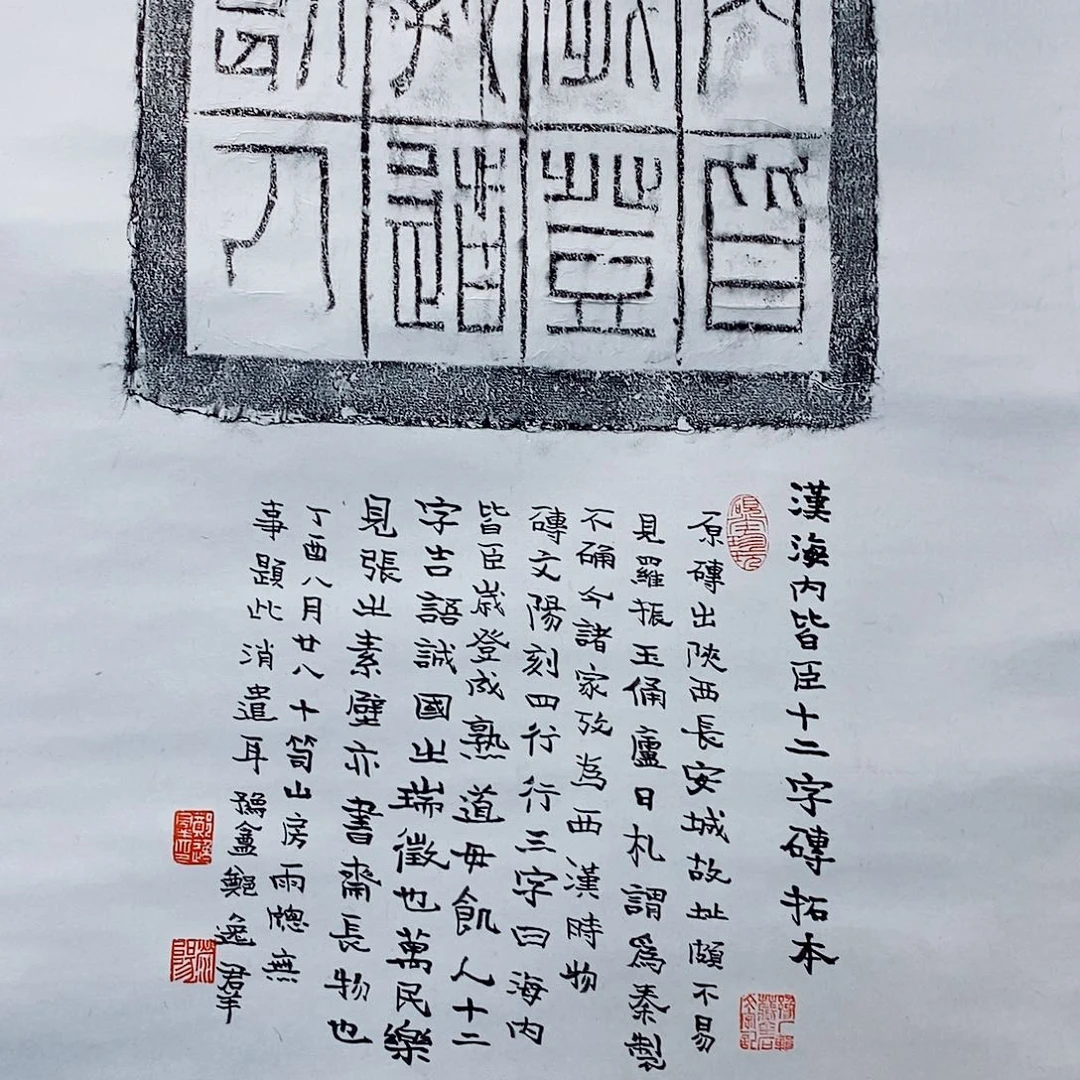 皆
登
道
人
漢海內皆臣十二字磚拓本
原磚出陝西長安城故址頗不易
見羅振玉俑廬日札謂爲秦製
不确今諸家攷為西漢時物
磚文陽刻四行行三字曰海內
皆臣歲登成熟道毋飢人十二
字吉語誠國之瑞徵也萬民樂
見張之素壁亦書齋長物也
丁酉八月廿八十筍山房雨窗無
事題此消遣耳豫盦鄭逸群